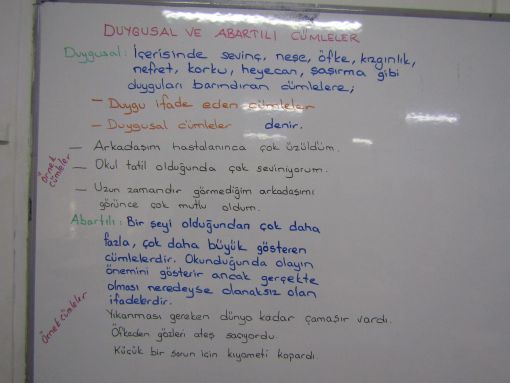 DUYGUSAL VE ABARTILI CÜMLELER
Duygusal: İçerisinde sevinç, neşe, öfke, kızgınlık,
nefret, korku, heyecan, şaşırma gibi
duyguları barındıran cümlelere;
– Duygu ifade eden cümleler
– Duygusal cümleler denir.
Örnek cümleler
— Arkadaşım hastalanınca çok üzüldüm.
— Okul tatil olduğunda çok seviniyorum.
— Uzun zamandır görmediğim arkadaşımı
görünce çok mutlu oldum.
Abartılı: Bir şeyi olduğundan çok daha
fazla, çok daha büyük gösteren
cümlelerdir. Okunduğunda olayın
önemini gösterir ancak gerçekte
olması neredeyse olanaksız olan
ifadelerdir.
Örnek cümleler
Yıkanması gereken dünya kadar çamaşır vardı.
Öfkeden gözleri ateş saçıyordu.
Küçük bir sorun için kıyameti kopardı.